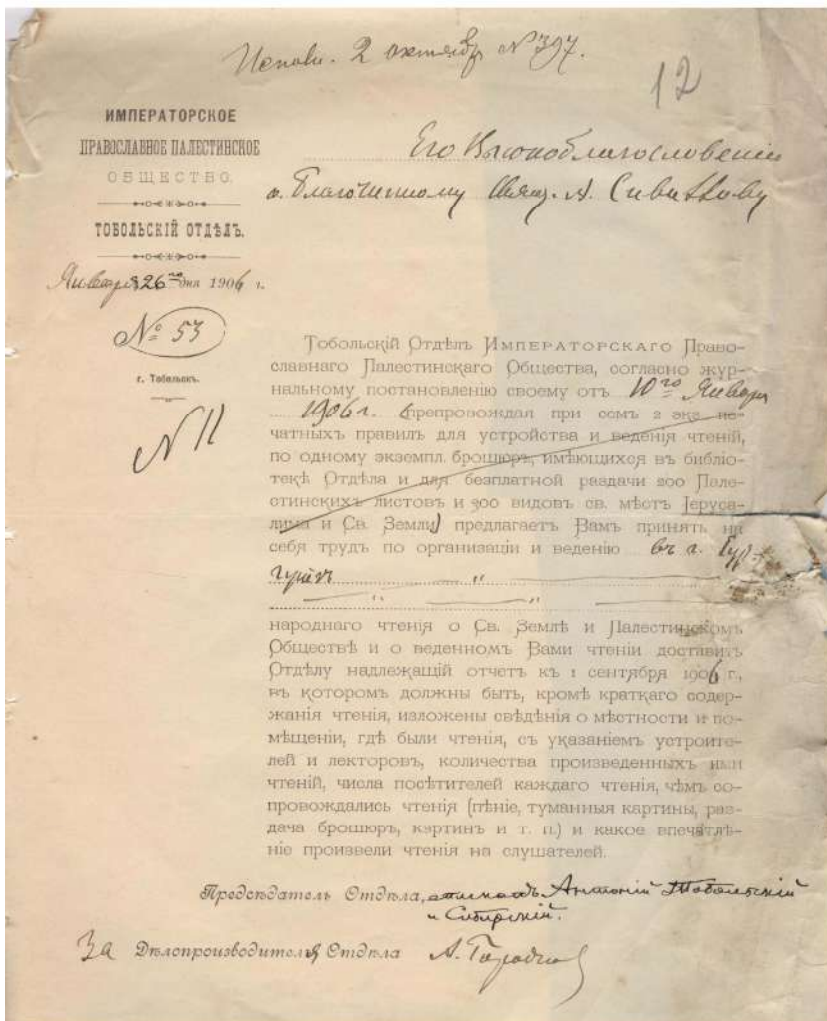 Исполн. 2 октябр № 397.
12
ИМПЕРАТОРСКОЕ
ПРАВОСЛАВНОЕ ПАЛЕСТИНСКОЕ
ОБЩЕСТВО.
ТОБОЛЬСКІЙ ОТДѢЛЪ.
Января 26 го дня 1906 г.
№ 53
г. Тобольскъ.
№ 11
Его Высокоблагословенію
о. Благочинному Свящ. А.
Тобольскій Отдѣлъ Императорскаго Право-
славнаго Палестинскаго Общества, согласно жур-
нальному постановленію своему отъ 10го Января
1906 г. (препровождая при семъ 2 экз. пе-
чатныхъ правилъ для устройства и веденія чтеній,
по одному экземпл. брошюръ, имѣющихся въ библіо-
текѣ Отдѣла и для безплатной раздачи 200 Пале-
стинскихъ листовъ и 300 видовъ св. мѣстъ Іеруса-
лима и Св. Земли) предлагаетъ Вамъ принять на
себя трудъ по организаціи и веденію въ г.
народнаго чтенія о Св. Землѣ и Палестинскомъ
Обществѣ и о веденномъ Вами чтеніи доставить
Отдѣлу надлежащій отчетъ къ 1 сентября 1906 г.,
въ которомъ должны быть, кромѣ краткаго содер-
жанія чтенія, изложены свѣдѣнія о мѣстности и по-
мѣщеніи, гдѣ были чтенія, съ указаніемъ устроите-
лей и лекторовъ, количества произведенныхъ ими
чтеній, числа посѣтителей каждаго чтенія, чѣмъ со-
провождались чтенія (пѣніе, туманныя картины, раз-
дача брошюръ, картинъ и т. п.) и какое впечатлѣ-
ніе произвели чтенія на слушателей.
Предсѣдатель Отдѣла, епископъ Антоній Тобольскій
и Сибирскій.
За Дѣлопроизводителя Отдѣла А.